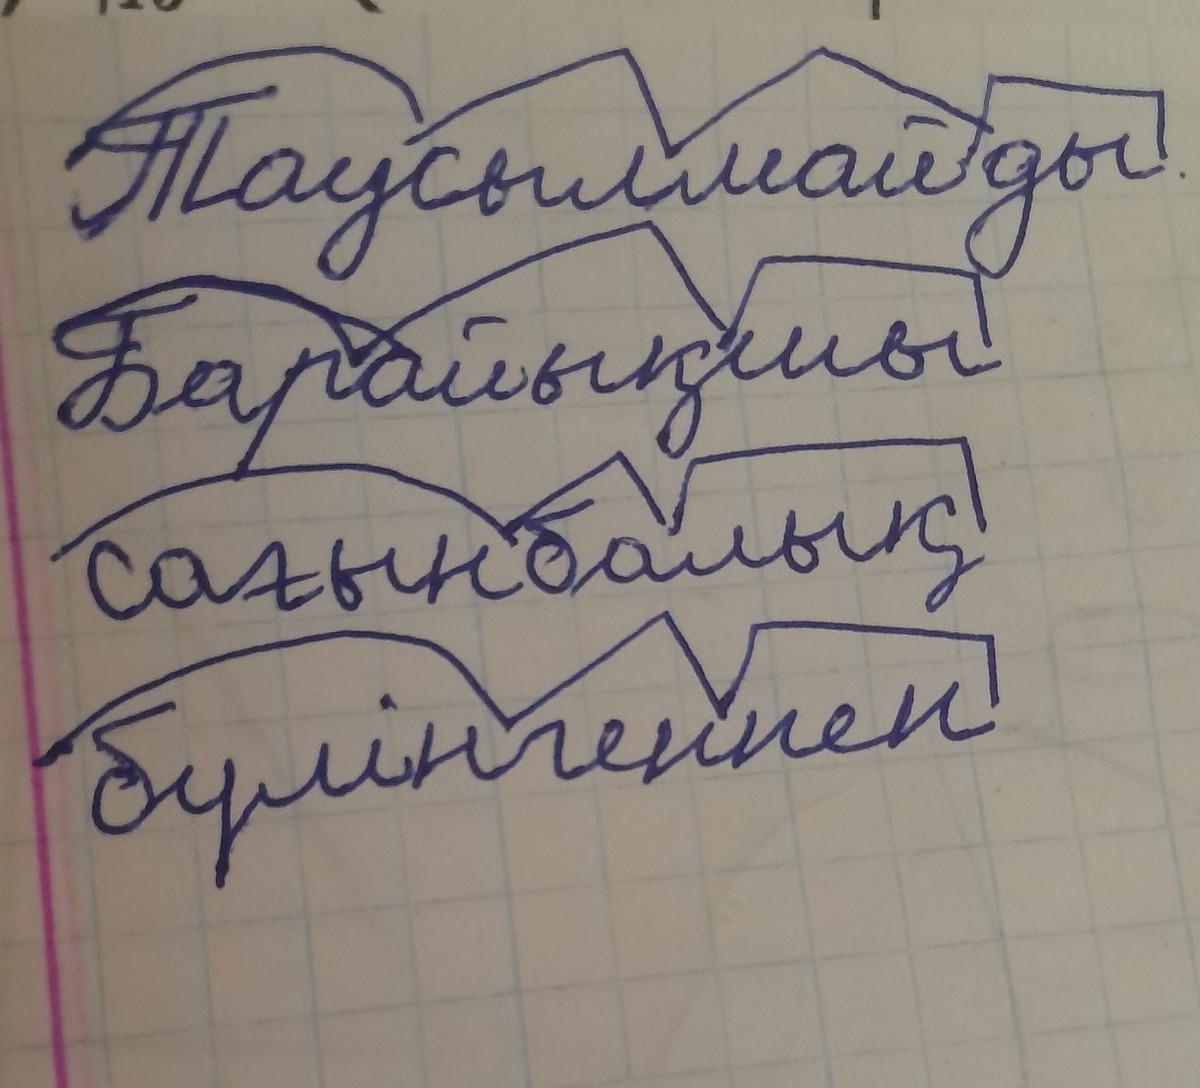 Таусылмайды.
Барайықшы
сағынбалық
бүлінгеннен